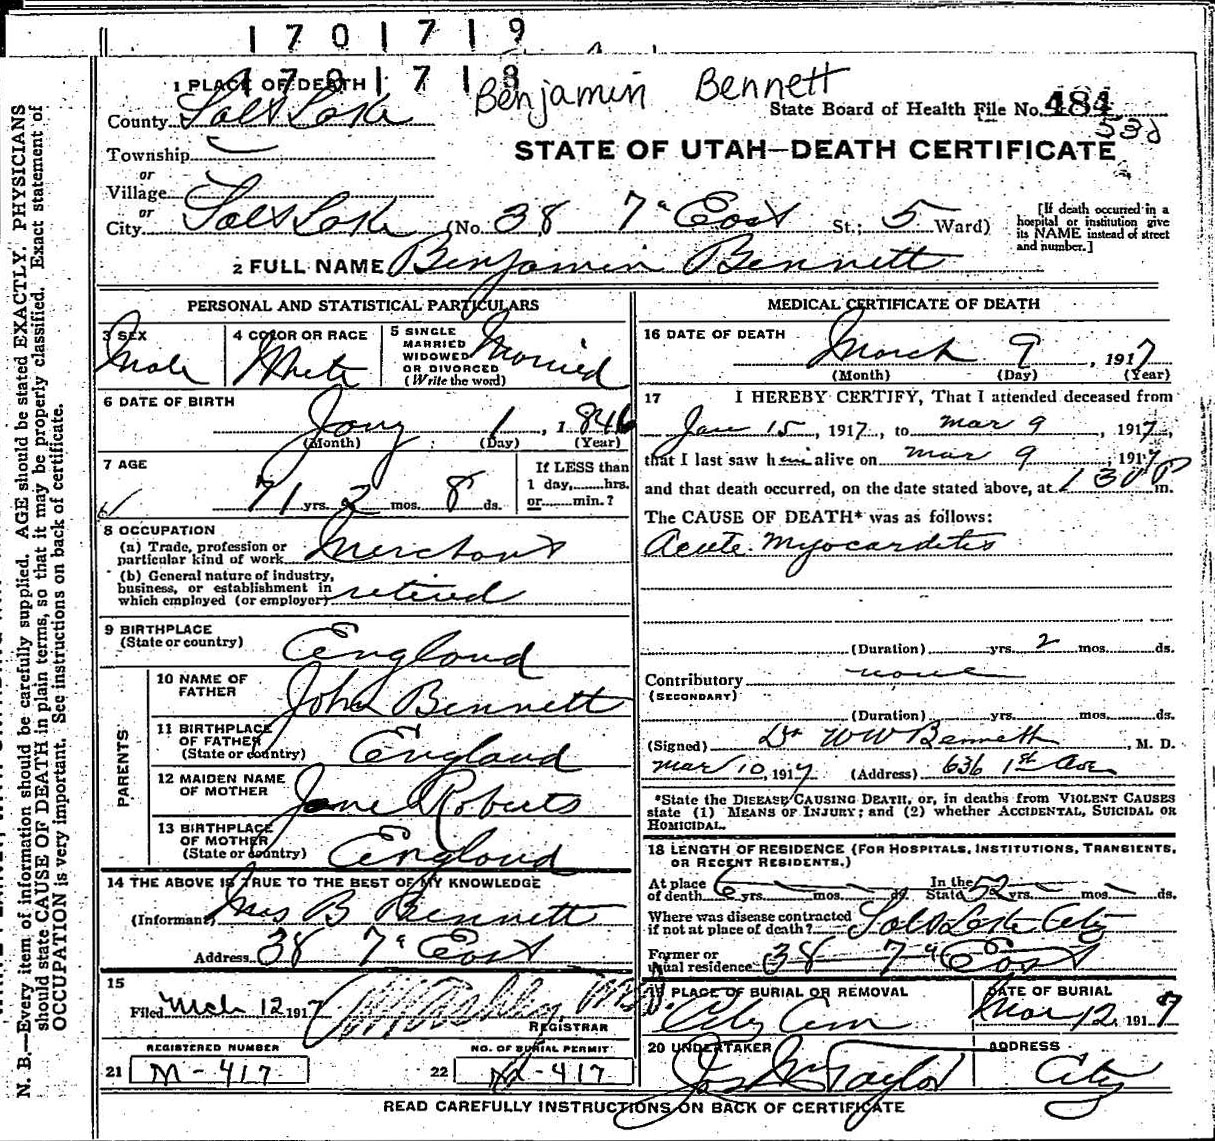 1701719
1701718
Benjamin Bennett
1 PLACE OF DEATH
State Board of Health File No. 484
County Salt Lake
530
STATE OF UTAH—DEATH CERTIFICATE
Township
or
Village
or
City Salt Lake (No. 38 7th East St.; 5 Ward)
[If death occurred in a hospital or institution give its NAME instead of street and number.]
2 FULL NAME Benjamin Bennett
PERSONAL AND STATISTICAL PARTICULARS
3 SEX
Male
4 COLOR OR RACE
White
5 SINGLE
MARRIED
WIDOWED
OR DIVORCED
(Write the word)
Married
6 DATE OF BIRTH
Jany 1, 1846
(Month) (Day) (Year)
7 AGE
71 yrs. 2 mos. 8 ds.
If LESS than
1 day,......hrs.
or......min.?
8 OCCUPATION
(a) Trade, profession or
particular kind of work Merchant
(b) General nature of industry,
business, or establishment in
which employed (or employer) retired
9 BIRTHPLACE
(State or country) England
PARENTS
10 NAME OF
FATHER John Bennett
11 BIRTHPLACE
OF FATHER
(State or country) England
12 MAIDEN NAME
OF MOTHER Jane Roberts
13 BIRTHPLACE
OF MOTHER
(State or country) England
14 THE ABOVE IS TRUE TO THE BEST OF MY KNOWLEDGE
(Informant) Mrs B Bennett
Address 38 7th East
15
Filed Mch 12 1917
REGISTRAR
REGISTERED NUMBER
21 M-417
NO. OF BURIAL PERMIT
22 M-417
MEDICAL CERTIFICATE OF DEATH
16 DATE OF DEATH
March 9, 1917
(Month) (Day) (Year)
17 I HEREBY CERTIFY, That I attended deceased from
Jan 15, 1917, to Mar 9, 1917,
that I last saw him alive on Mar 9, 1917
and that death occurred, on the date stated above, at 1 30 P m.
The CAUSE OF DEATH* was as follows:
Acute Myocarditis
(Duration) yrs. 2 mos. ds.
Contributory none
(SECONDARY)
(Duration) yrs. mos. ds.
(Signed) Dr W W Bennett, M. D.
Mar 10, 1917 (Address) 636 1st Ave
*State the DISEASE CAUSING DEATH, or, in deaths from VIOLENT CAUSES
state (1) MEANS OF INJURY; and (2) whether ACCIDENTAL, SUICIDAL OR
HOMICIDAL.
18 LENGTH OF RESIDENCE (FOR HOSPITALS, INSTITUTIONS, TRANSIENTS,
OR RECENT RESIDENTS.)
At place
of death 6 yrs. mos. ds. In the
State 52 yrs. mos. ds.
Where was disease contracted
if not at place of death? Salt Lake City
Former or
usual residence 38 7th East
19 PLACE OF BURIAL OR REMOVAL
City Cem
DATE OF BURIAL
Mar 12, 1917
20 UNDERTAKER
Jos Wm Taylor
ADDRESS
City
READ CAREFULLY INSTRUCTIONS ON BACK OF CERTIFICATE
N. B.—Every item of information should be carefully supplied. AGE should be stated EXACTLY. PHYSICIANS
should state CAUSE OF DEATH in plain terms, so that it may be properly classified. Exact statement of
OCCUPATION is very important. See instructions on back of certificate.